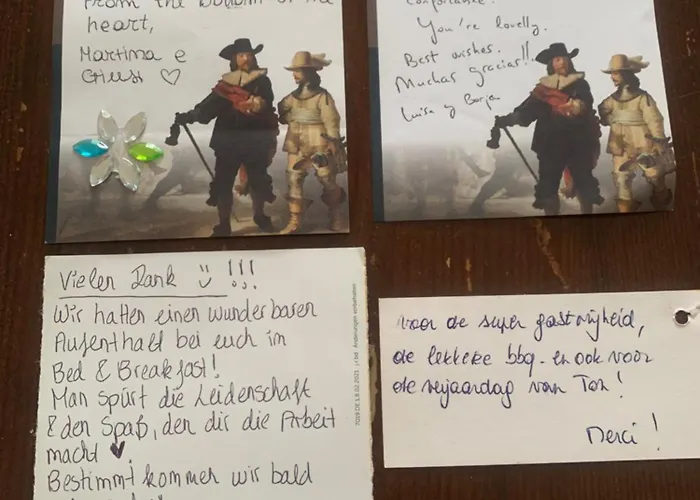 From the bottom of the
heart,
Martina e
♡
comfortable.
You're lovelly.
Best wishes.
Muchas gracias!!
Luisa y Borja
Vielen Dank !!!
Wir hatten einen wunderbaren
Aufenthalt bei euch im
Bed & Breakfast!
Man spürt die Leidenschaft
& den Spaß, den dir die Arbeit
macht ♥.
Bestimmt kommen wir bald
7019 DE 1.8.02.2021 Änderungen vorbehalten
voor de super gastvrijheid,
de lekkere bbq - en ook voor
de verjaardag van Ton!
Merci!